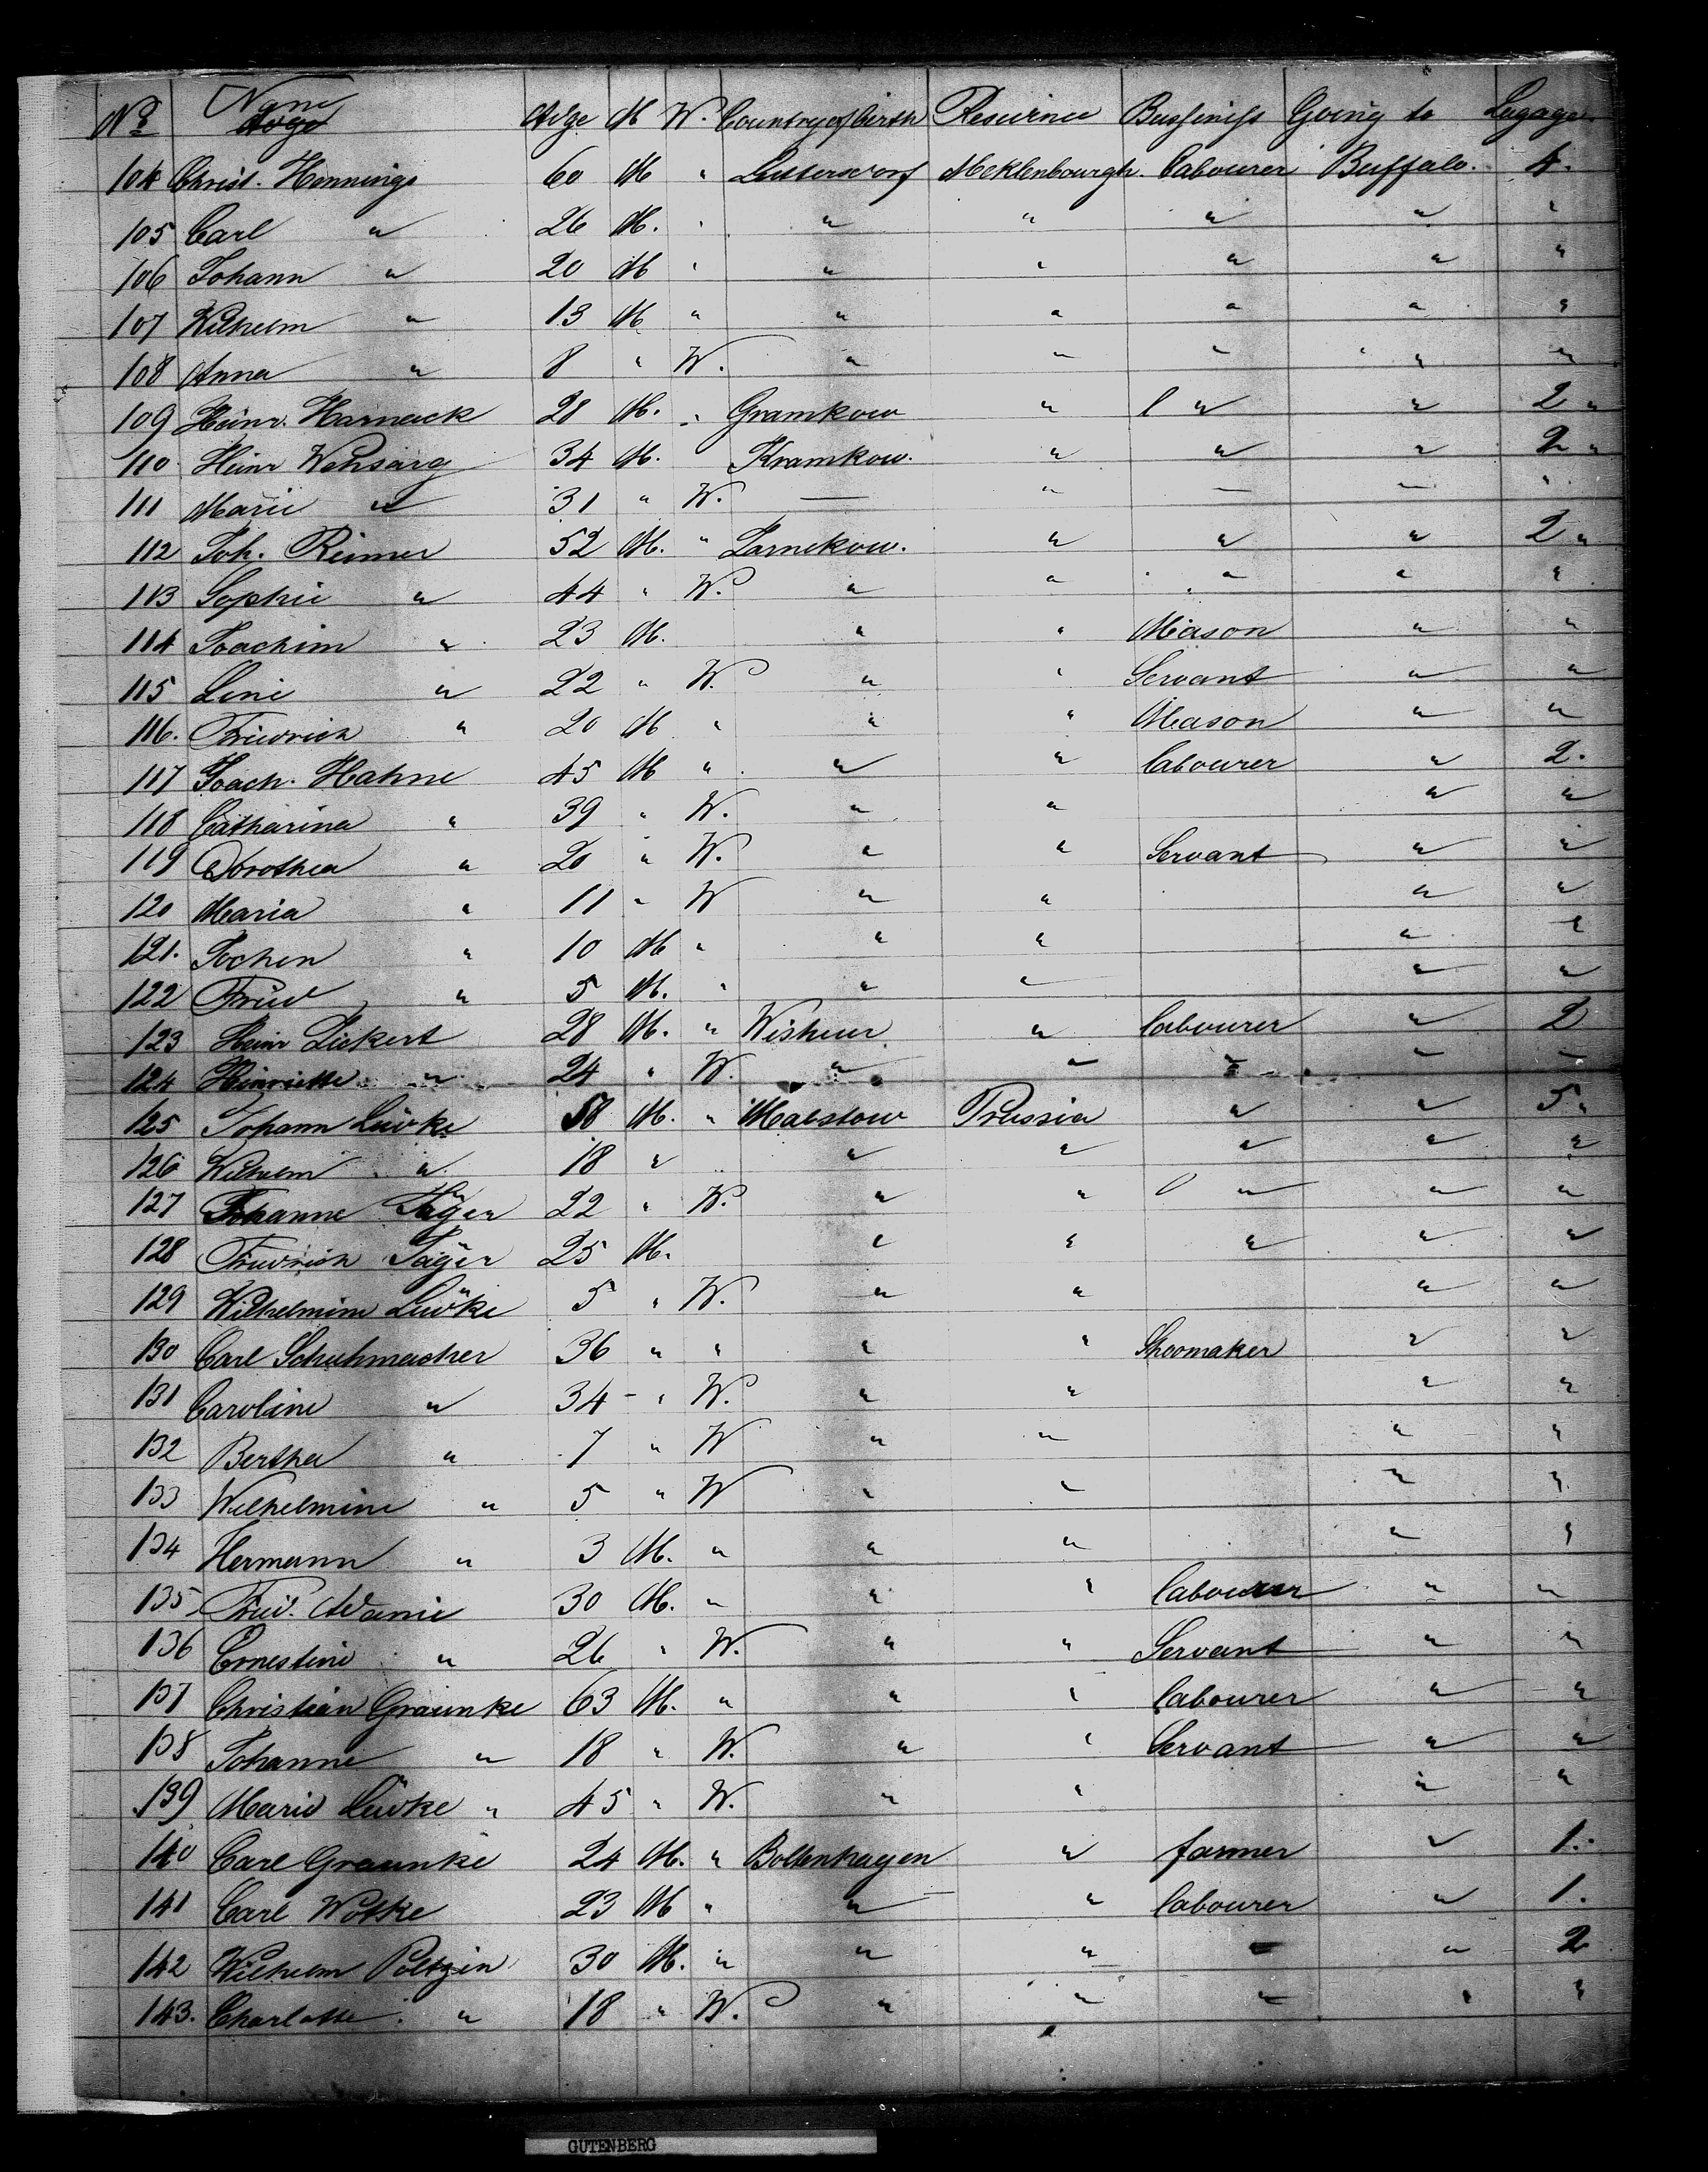 No Name Age M W. Country of birth Resirnce Bussiniss Going to Lugage.
104 Christ. Hennings 60 M " Luttersdorf Meklenbourgh. labourer Buffalo. 4.
105 Carl " 26 M. " " " " " "
106 Johann " 20 M " " " " " "
107 Wilhelm " 13 M " " " " " "
108 Anna " 8 " W. " " " " "
109 Heinr. Harnack 28 M. " Gramkow " " " 2 "
110 Heinr Wehsarg 34 M. Kramkow. " " " 2 "
111 Marie " 31 " W. — " — — "
112 Joh. Reimer 52 M. " Zarnekow. " " " 2 "
113 Sophie " 44 " W. " " " " "
114 Joachim " 23 M. " " Mason " "
115 Line " 22 " W. " " Servant " "
116. Friedrich " 20 M " " " Mason " "
117 Joach. Hahne 45 M " " " labourer " 2.
118 Catharina " 39 " W. " " " "
119 Dorothea " 20 " W. " " Servant " "
120 Maria " 11 " W " " " "
121. Jochen " 10 M " " " " "
122 Fried " 5 M. " " " " "
123 Heinr Lickert 28 M. " Wisheur " labourer " 2
124 Henriette " 24 " W. " " " " "
125 Johann Lüdke 58 M. " Malstow Prussia " " 5 "
126 Wilhelm " 18 " " " " " "
127 Johanne Jäger 22 " W. " " " " "
128 Friedrich Jäger 25 M. " " " " "
129 Wilhelmine Lüdke 5 " W. " " " "
130 Carl Schuhmacher 36 " " " " Shoomaker " "
131 Caroline " 34 - " W. " " " "
132 Bertha " 7 " W " " " "
133 Wilhelmine " 5 " W " " " "
134 Hermann " 3 M. " " " " "
135 Fried. Adamie 30 M. " " " labourer " "
136 Ernestine " 26 " W. " " Servant " "
137 Christian Graunke 63 M. " " " labourer " "
138 Johanne " 18 " W. " " Servant " "
139 Marie Lüdke " 45 " W. " " " "
140 Carl Graunke 24 M. " Boltenhagen " farmer " 1.
141 Carl Wotke 23 M " " " labourer " 1.
142 Wilhelm Poltzin 30 M. " " " " " 2
143. Charlotte " 18 " W. " " " " "
GUTENBERG